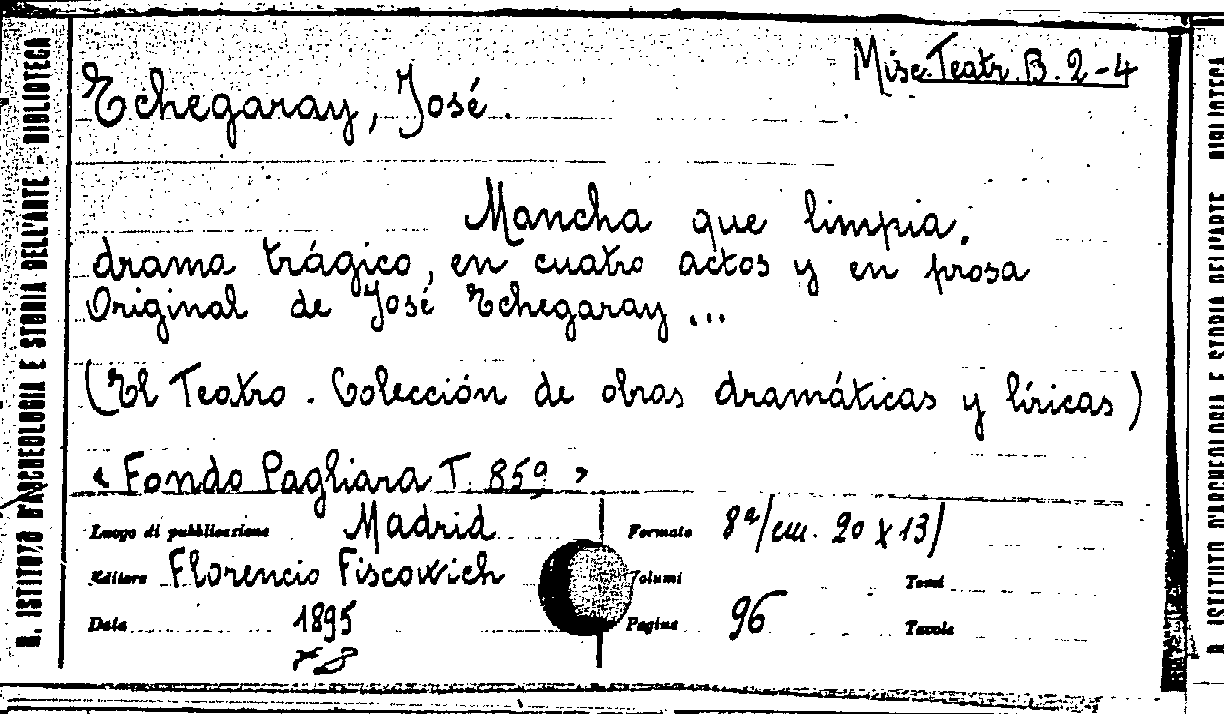 Misc. Teatr. B. 2-4
Echegaray, José.
Mancha que limpia.
drama trágico, en cuatro actos y en prosa
Original de José Echegaray ...
(El Teatro. Colección de obras dramáticas y líricas)
« Fondo Pagliara T. 859 »
Luogo di pubblicazione Madrid
Formato 8ª/cm. 20 x 13/
Editore Florencio Fiscowich
Volumi
Tomi
Data 1895
Pagine 96
Tavole
R. ISTITUTO D'ARCHEOLOGIA E STORIA DELL'ARTE - BIBLIOTECA
R. ISTITUTO D'ARCHEOLOGIA E STORIA DELL'ARTE BIBLIOTECA